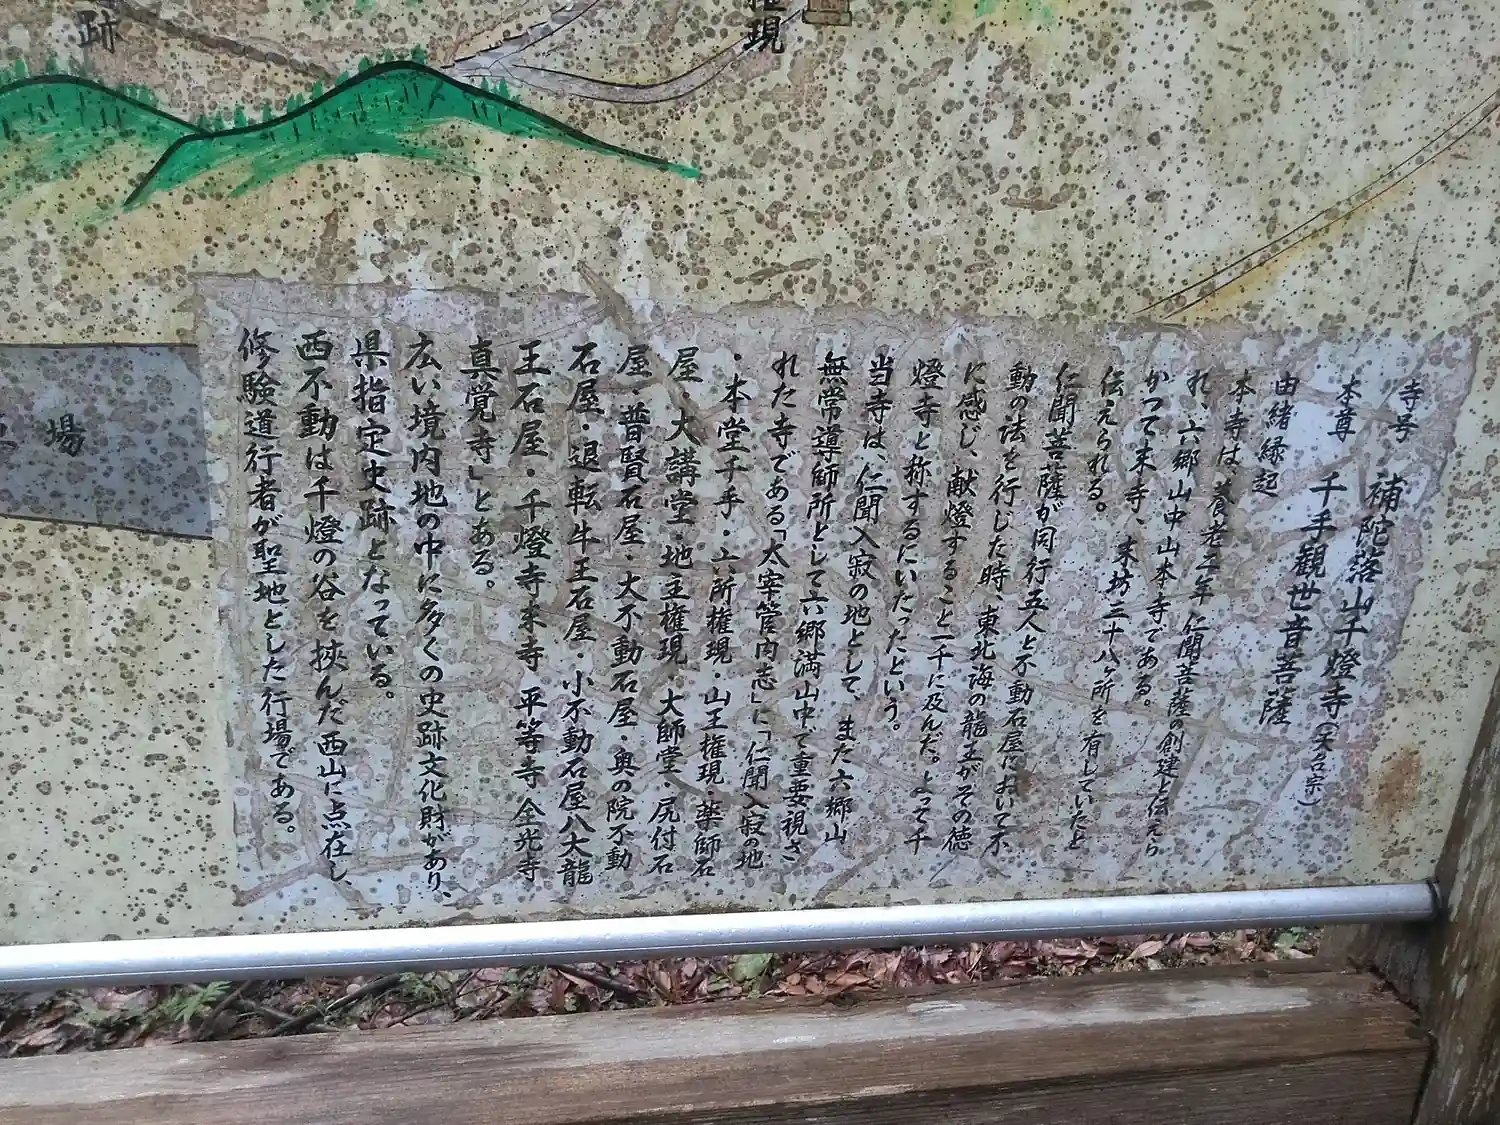 跡
現
場
寺号 補陀落山千燈寺(天台宗)
本尊 千手観世音菩薩
由緒縁起
本寺は、養老二年 仁聞菩薩の創建と伝えら
れ、六郷山中山本寺である。
かつて末寺、末坊三十八ヶ所を有していたと
伝えられる。
仁聞菩薩が同行五人と不動石屋において不
動の法を行じた時、東北海の龍王がその徳
に感じ、献燈すること一千に及んだ。よって千
燈寺と称するにいたったという。
当寺は、仁聞入寂の地として、また六郷山
無常導師所として六郷満山中で重要視さ
れた寺である「太宰管内志」に「仁聞入寂の地
・本堂千手・六所権現・山王権現・薬師石
屋・大講堂・地主権現・大師堂・尻付石
屋・普賢石屋・大不動石屋・奥の院不動
石屋・退転牛王石屋・小不動石屋八大龍
王石屋・千燈寺末寺 平等寺 全光寺
真覚寺」とある。
広い境内地の中に多くの史跡文化財があり、
県指定史跡となっている。
西不動は千燈の谷を挾んだ西山に点在し、
修験道行者が聖地とした行場である。